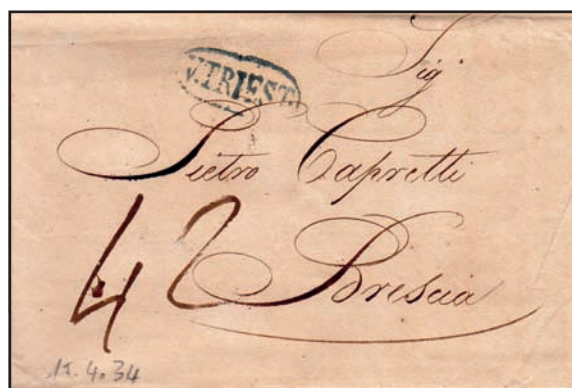 V. TRIEST.
Sig
Pietro Capretti
Brescia
42
15. 4. 34